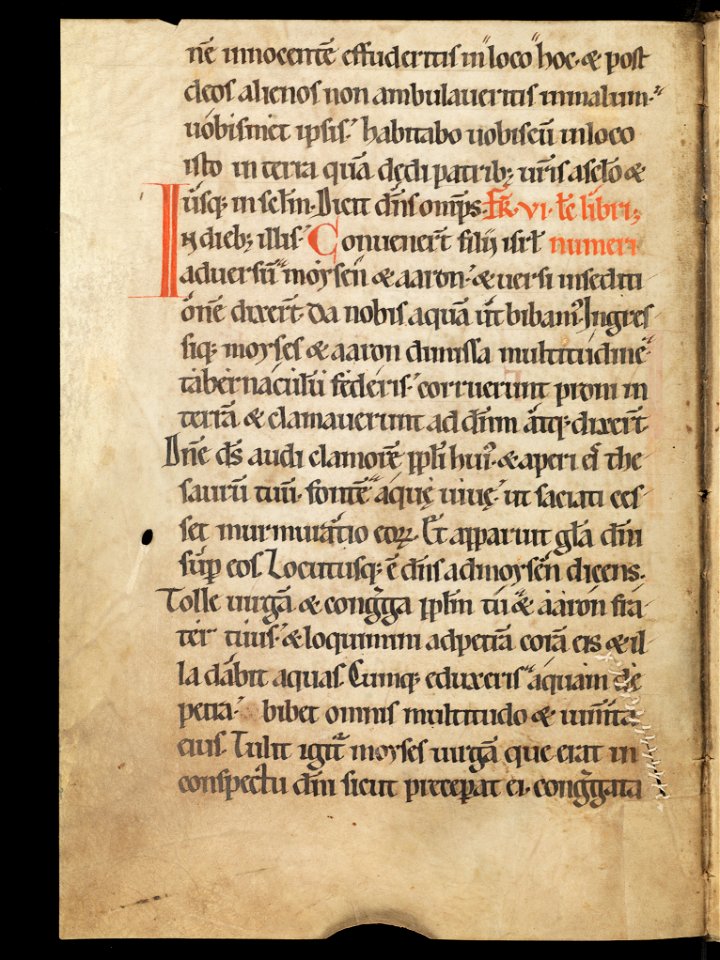 nē innocentē effuderitis in loco hoc· & post
deos alienos non ambulaveritis in malum·
uobismet ipsis· habitabo uobiscū in loco
isto in terra quā dędi patrib; ur̄is a sc̄lo &
usq; in sc̄lm· Dicit dn̄s omp̄s· Fr̄· VI· Lc̄ libri
In dieb; illis· Convener̄t filij isrł numeri
adversū moysen & aaron· & versi in sediti
onē dixer̄t· da nobis aquā ut bibam᷒· Ingres
siq; moyses & aaron dimissa multitudine
tabernaculū federis· corruerunt proni in
terrā & clamaverunt ad dn̄m atq; dixer̄t
Dn̄e ds̄ audi clamorē ppłi hui᷒· & aperi eis the
saurū tuū· fontē aquę uiuę· ut saciati ces
set murmuratio eoꝝ· Et apparuit glā dn̄i
sup̄ eos· Locutusq; ē dn̄s ad moysen dicens·
Tolle uirgā & congrega ppłm tu & aaron fra
ter tuus· & loquimini ad petrā corā eis & il
la dabit aquas· Cumq; eduxeris aquam de
petra· bibet omnis multitudo & iumta
eius· Tulit igit᷑ moyses uirgā que erat in
conspectu dn̄i sicut preceperat ei· congregata